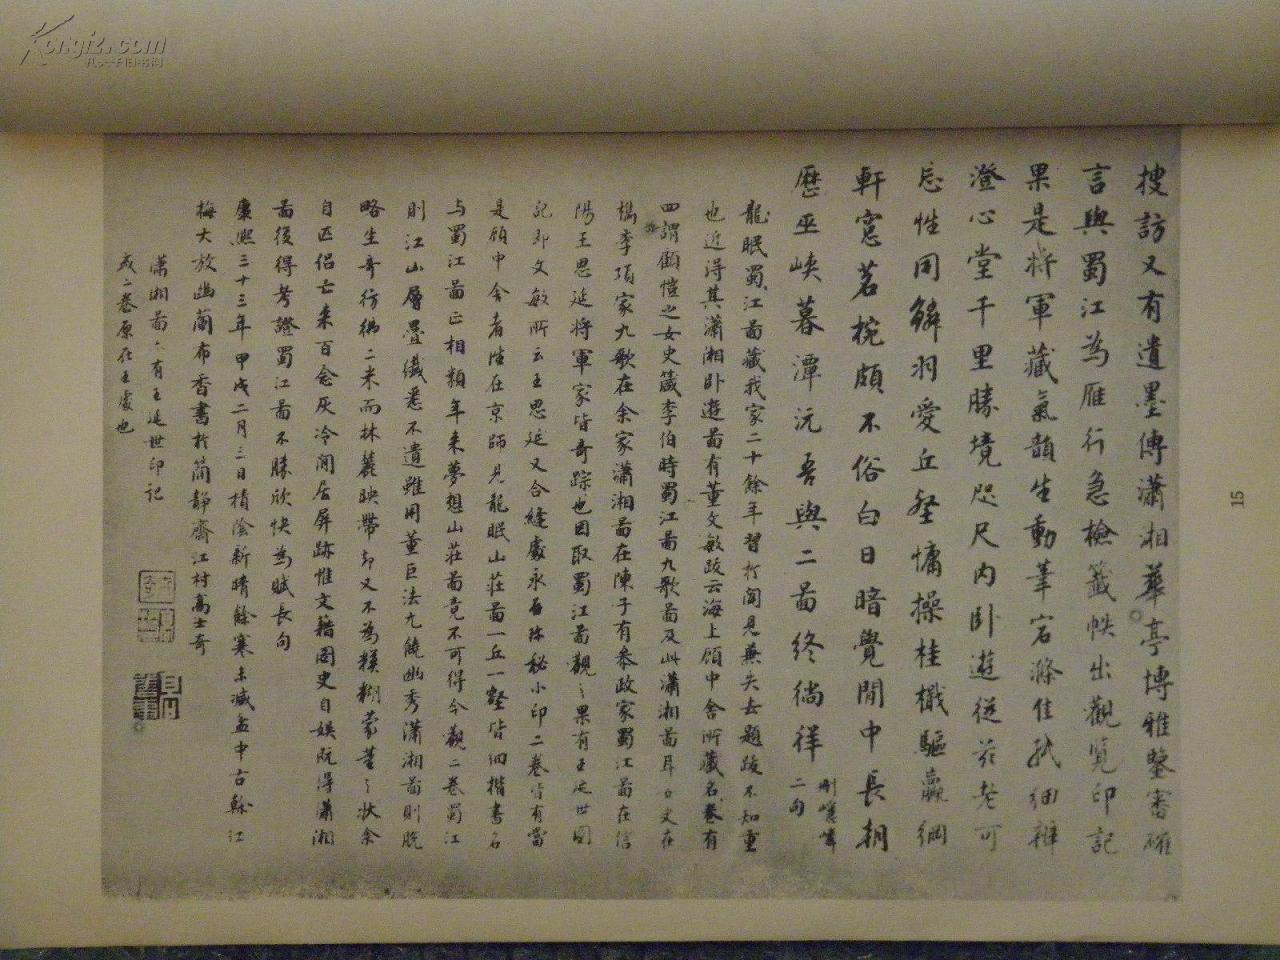 搜訪又有遺墨傳瀟湘華亭博雅鑒審確
言與蜀江為雁行急檢籤帙出觀覽印記
果是將軍藏氣韻生動筆宕滌佳紙細辨
澄心堂千里勝境咫尺內卧遊從茲老可
忘性同鱗羽愛丘壑慵操桂檝驅羸綱
軒窓茗椀頗不俗白日暗覺閒中長朝
歷巫峽暮潭沅吾與二啚終徜徉
刪嘆
二句
龍眠蜀江啚藏我家二十餘年習於聞見兼失去題跋不知重
也近得其瀟湘卧遊啚有董文敏跋云海上顧中舍所藏名卷有
四謂顧愷之女史箴李伯時蜀江啚九歌啚及此瀟湘啚耳女史在
檇李項家九歌在余家瀟湘啚在陳子有參政家蜀江啚在信
陽王思延將軍家皆奇踪也因取蜀江啚觀之果有王延世圖
記即文敏所云王思延又合縫處永存珎秘小印二卷皆有當
是顧中舍者往在京師見龍眠山莊啚一丘一壑皆細楷書名
与蜀江啚正相類年來夢想山莊啚竟不可得今觀二卷蜀江
則江山層疊纖悉不遺雖用董巨法尤饒幽秀瀟湘啚則脫
略生奇行彿二米而林麓映帶却又不為糢糊蒙茸之狀余
自匹侶亡來百念灰冷閒居屏跡惟文籍圖史自娛既得瀟湘
啚後得考證蜀江啚不勝欣快為賦長句
康熙三十三年甲戌二月三日積陰新晴餘寒未減盆中古榦江
梅大放幽蘭布香書於簡靜齋江村高士奇
瀟湘啚亦有王延世印記
或二卷原在王處也
15
Kongfz.com
孔夫子旧书网